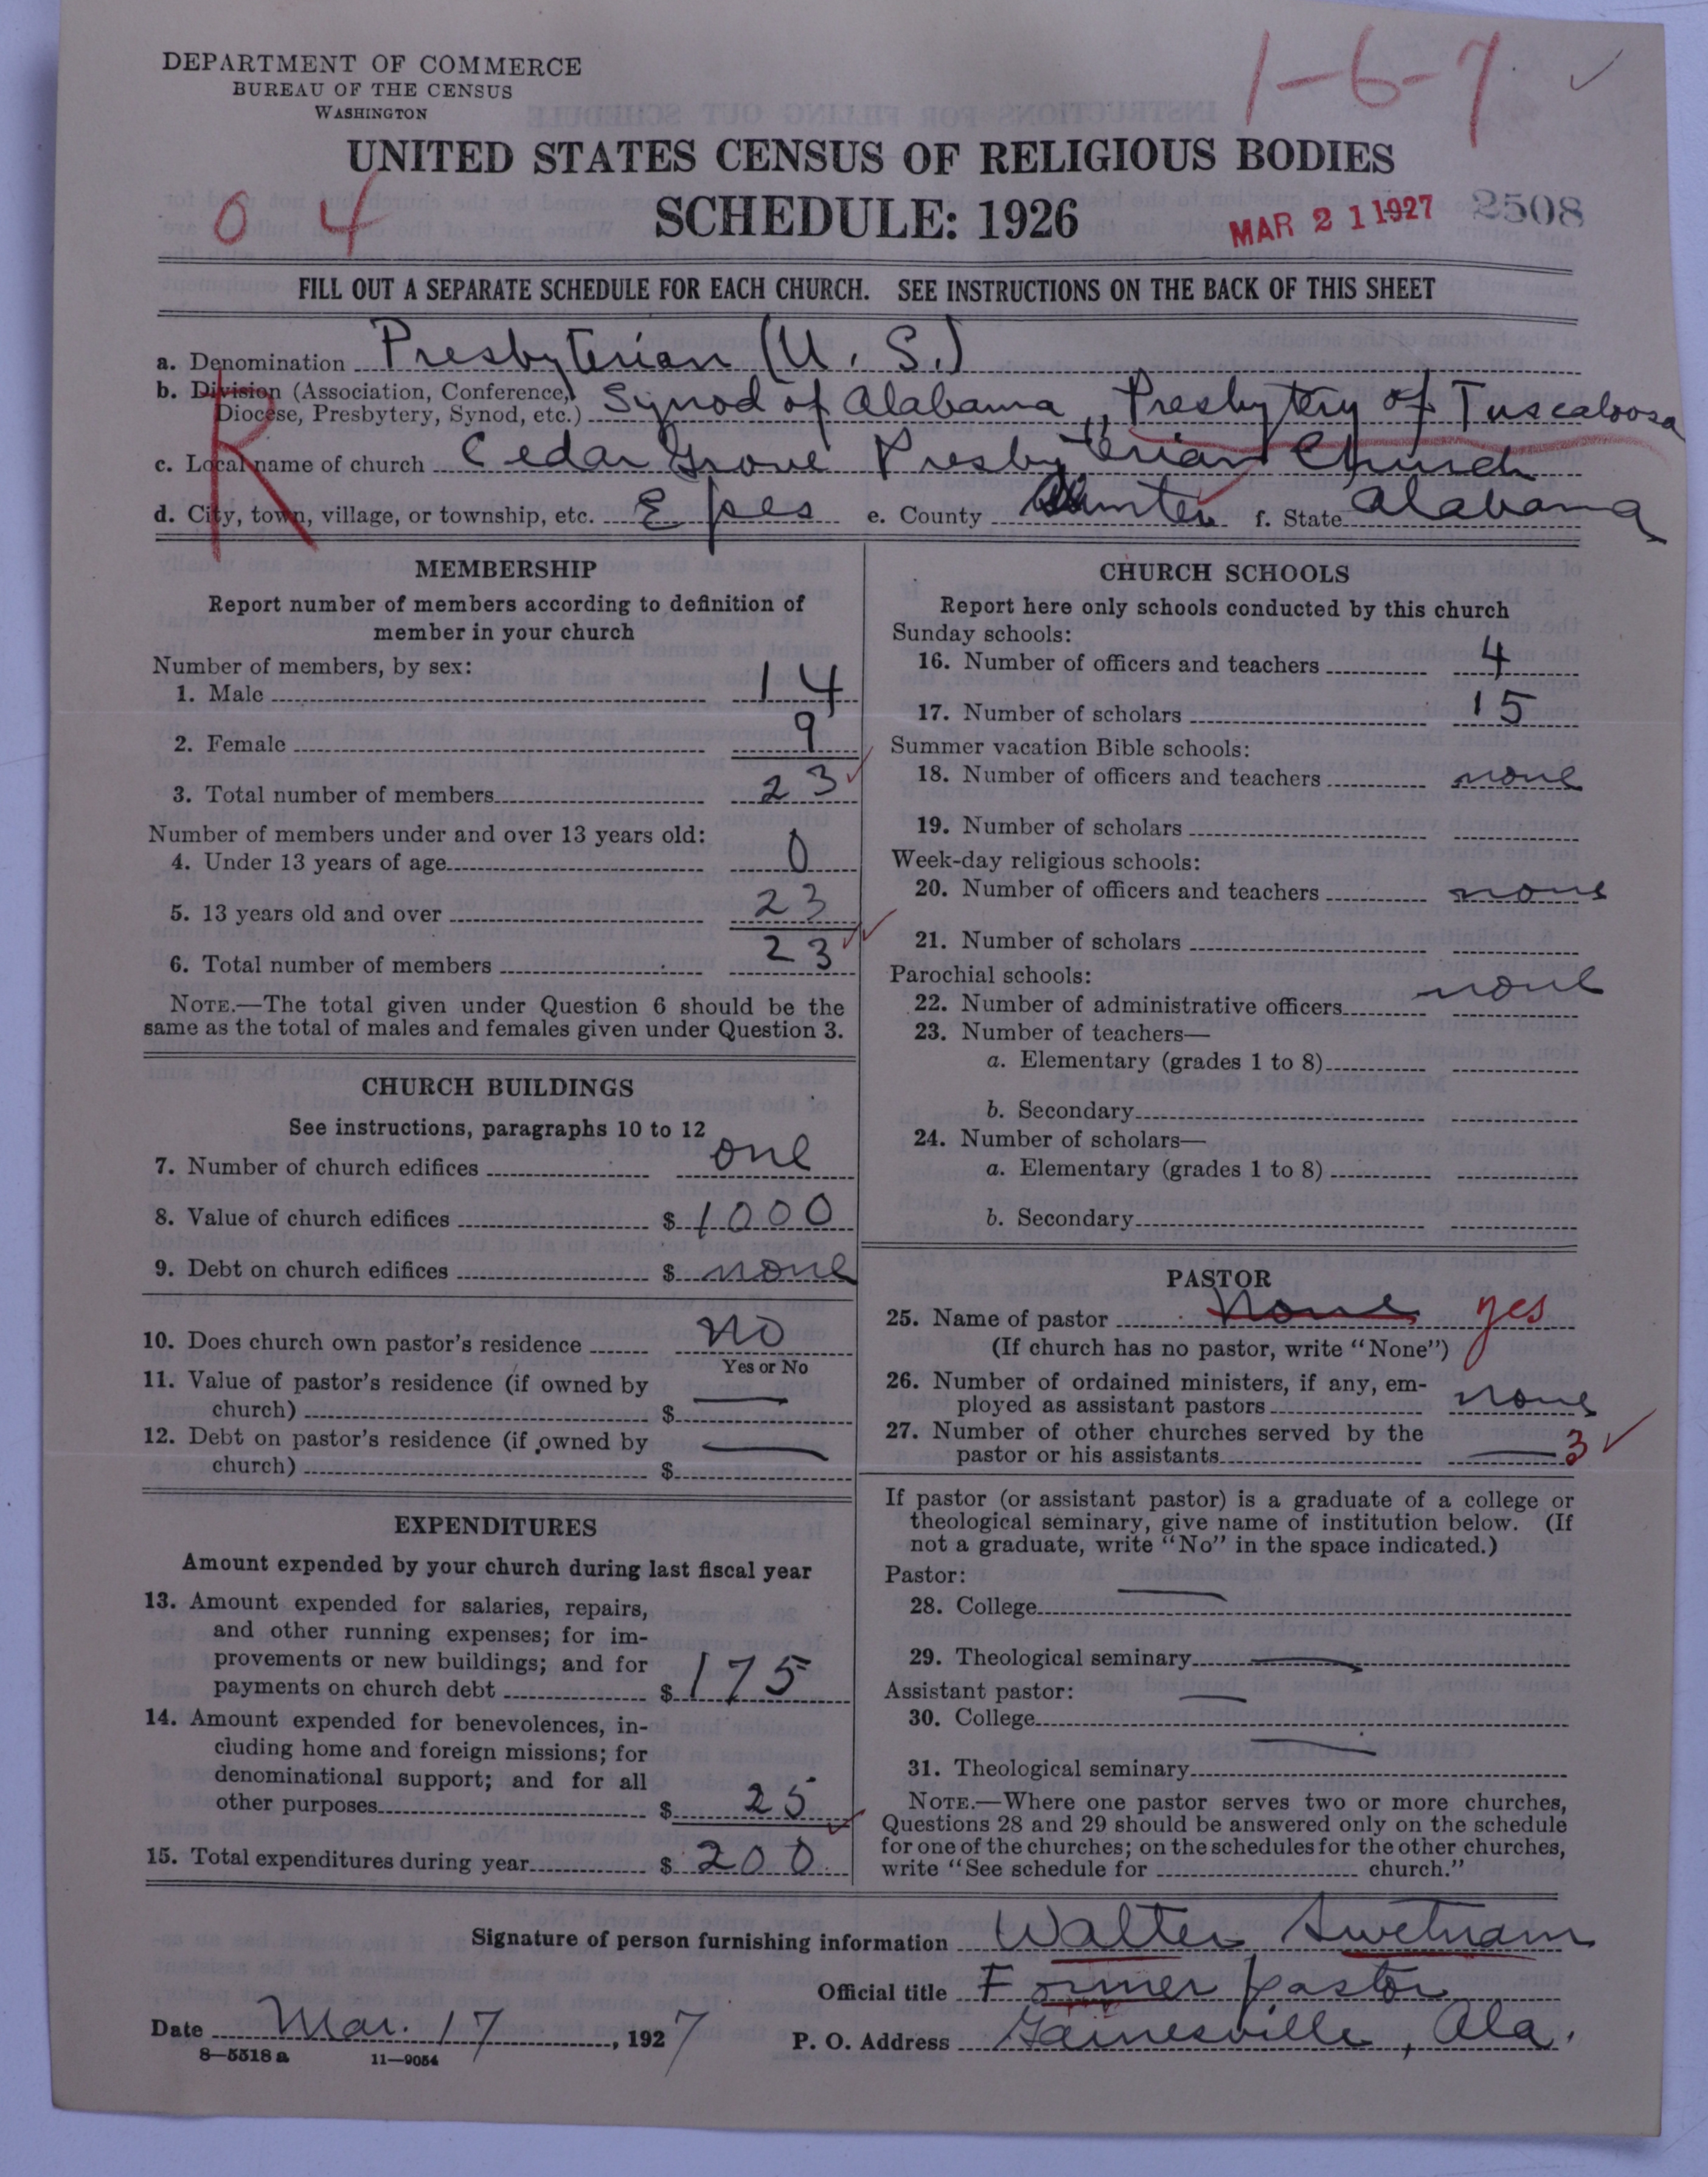 DEPARTMENT OF COMMERCE
BUREAU OF THE CENSUS
WASHINGTON
1-6-7
UNITED STATES CENSUS OF RELIGIOUS BODIES
0 4
SCHEDULE: 1926
MAR 21 1927
2508
FILL OUT A SEPARATE SCHEDULE FOR EACH CHURCH. SEE INSTRUCTIONS ON THE BACK OF THIS SHEET
a. Denomination Presbyterian (U. S.)
b. Division (Association, Conference, Diocese, Presbytery, Synod, etc.) Synod of Alabama, Presbytery of Tuscaloosa
R
c. Local name of church Cedar Grove Presbyterian Church
d. City, town, village, or township, etc. Epes e. County Sumter f. State Alabama
MEMBERSHIP
Report number of members according to definition of
member in your church
Number of members, by sex:
1. Male 14
2. Female 9
3. Total number of members 23
Number of members under and over 13 years old:
4. Under 13 years of age 0
5. 13 years old and over 23
6. Total number of members 23
NOTE.—The total given under Question 6 should be the
same as the total of males and females given under Question 3.
CHURCH BUILDINGS
See instructions, paragraphs 10 to 12
7. Number of church edifices one
8. Value of church edifices $ 1000
9. Debt on church edifices $ none
10. Does church own pastor's residence no
Yes or No
11. Value of pastor's residence (if owned by
church) $ —
12. Debt on pastor's residence (if owned by
church) $ —
EXPENDITURES
Amount expended by your church during last fiscal year
13. Amount expended for salaries, repairs,
and other running expenses; for im-
provements or new buildings; and for
payments on church debt $ 175
14. Amount expended for benevolences, in-
cluding home and foreign missions; for
denominational support; and for all
other purposes $ 25
15. Total expenditures during year $ 200
CHURCH SCHOOLS
Report here only schools conducted by this church
Sunday schools:
16. Number of officers and teachers 4
17. Number of scholars 15
Summer vacation Bible schools:
18. Number of officers and teachers none
19. Number of scholars
Week-day religious schools:
20. Number of officers and teachers none
21. Number of scholars
Parochial schools:
22. Number of administrative officers none
23. Number of teachers—
a. Elementary (grades 1 to 8)
b. Secondary
24. Number of scholars—
a. Elementary (grades 1 to 8)
b. Secondary
PASTOR
25. Name of pastor None yes
(If church has no pastor, write "None")
26. Number of ordained ministers, if any, em-
ployed as assistant pastors none
27. Number of other churches served by the
pastor or his assistants — 3
If pastor (or assistant pastor) is a graduate of a college or
theological seminary, give name of institution below. (If
not a graduate, write "No" in the space indicated.)
Pastor:
28. College —
29. Theological seminary —
Assistant pastor:
30. College —
31. Theological seminary —
NOTE.—Where one pastor serves two or more churches,
Questions 28 and 29 should be answered only on the schedule
for one of the churches; on the schedules for the other churches,
write "See schedule for church."
Signature of person furnishing information Walter Swetnam
Official title Former pastor
Date Mar. 17, 1927 P. O. Address Gainesville, Ala.
8—5518 a 11—9054